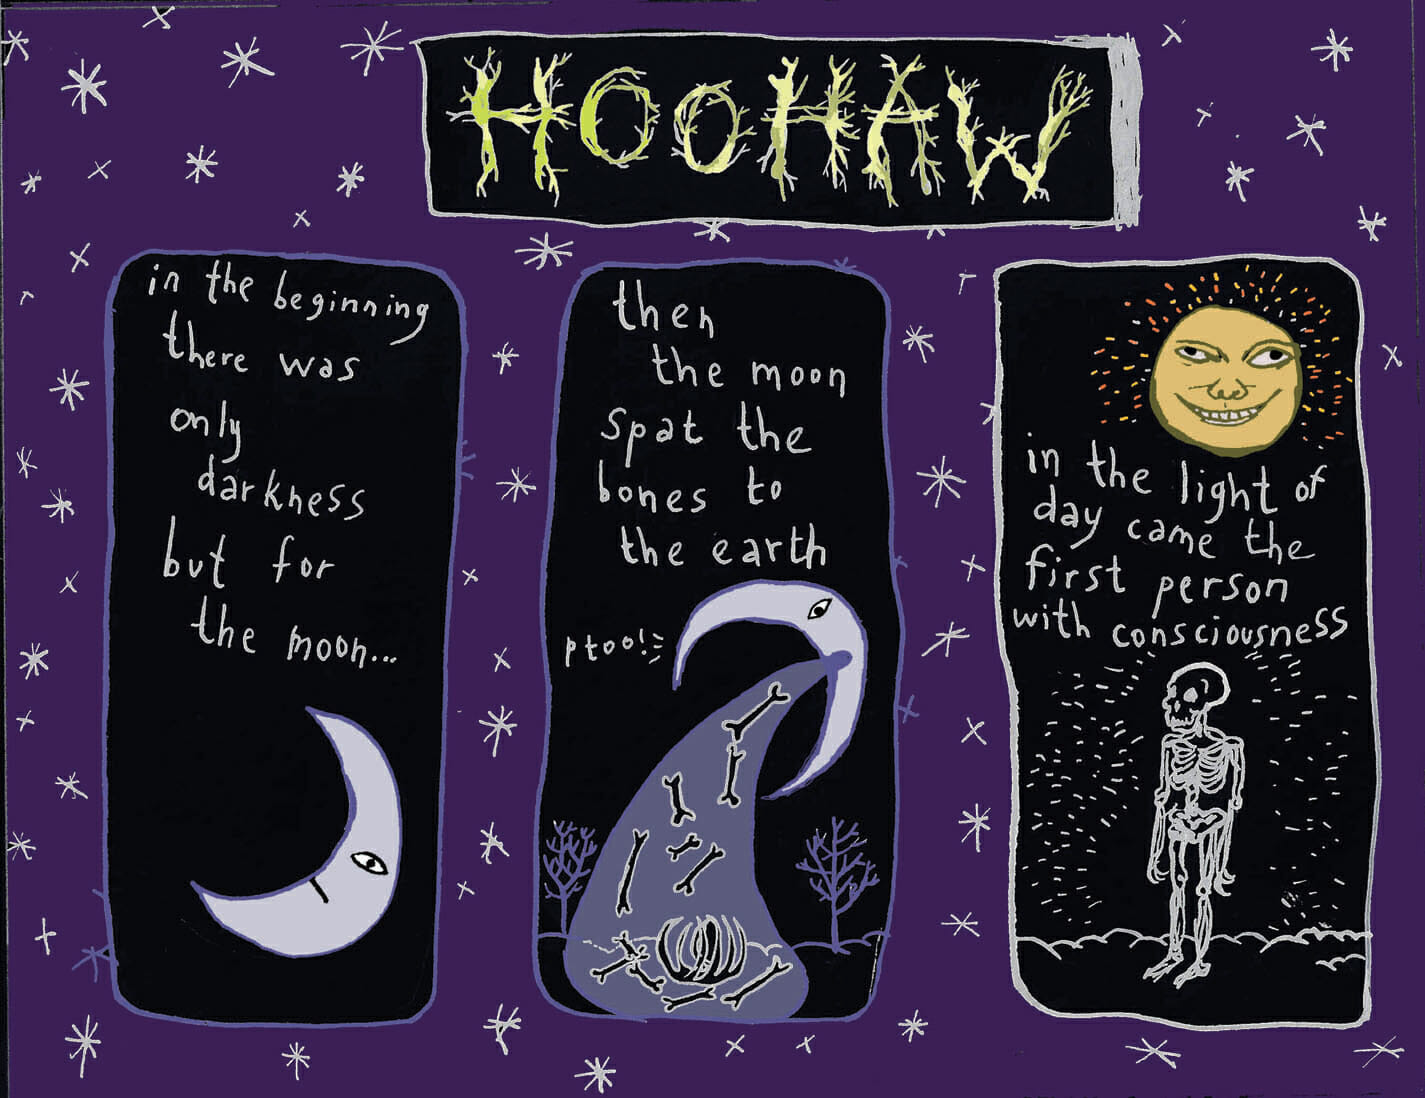 HOOHAW
in the beginning
there was
only
darkness
but for
the moon...
then
the moon
spat the
bones to
the earth
ptoo!
in the light of
day came the
first person
with consciousness